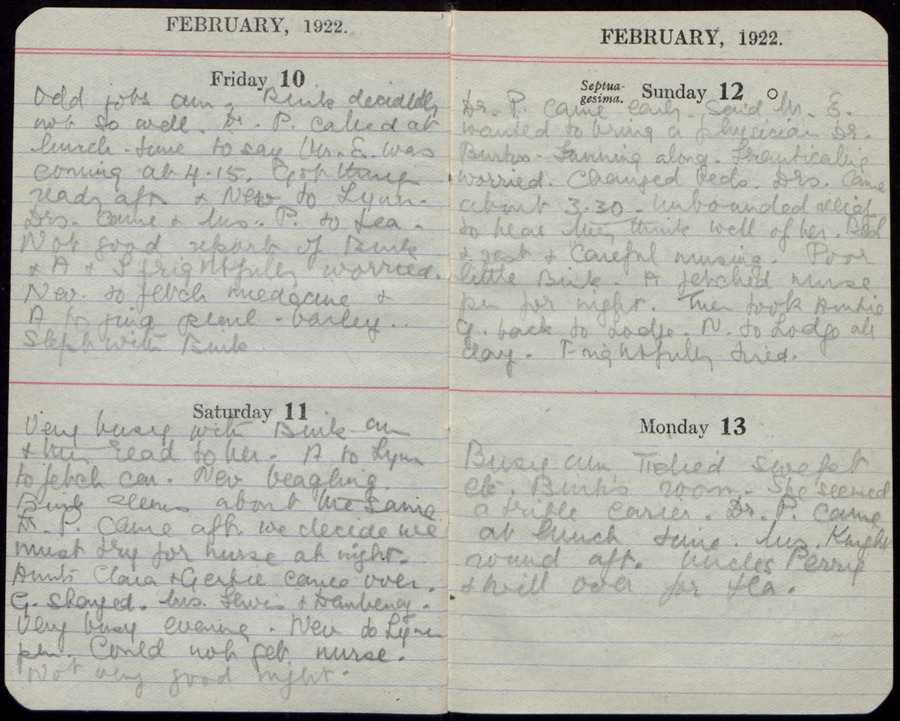 FEBRUARY, 1922.
Friday 10
Odd jobs am. Bink decidedly
not so well. Dr. P. called at
lunch-time to say Mr. E. was
coming at 4.15. Got things
ready aft & Nev. to Lynn.
Drs. came & Mrs. P. to tea.
Not good report of Bink
& A & I frightfully worried.
Nev. to fetch medecine &
A to pearl-barley.
Slept with Bink
Saturday 11
Very busy with Bink am
& then read to her. A to Lynn
to fetch car. Nev beagling.
Bink seems about the same
Dr. P. came aft. we decide we
must try for nurse at night.
Aunts Clara & Gertie came over.
G. stayed. Mrs. Lewis & Daubeney.
Very busy evening. Nev to Lynn
pm. Could not get nurse.
Not very good night.
FEBRUARY, 1922.
Septua-
gesima. Sunday 12
Dr. P. came early. Said Mr. E.
wanted to bring a physician Dr.
along. Frantically
worried. Changed beds. Drs. came
about 3.30. Unbounded relief
to hear they think well of her. Bed
& rest & careful nursing. Poor
little Bink. A fetched nurse
pm for night. Then took Auntie
G. back to Lodge. N. to Lodge all
day. Frightfully tired.
Monday 13
Busy am Tidied swept
etc. Bink's room. She seemed
a trifle easier. Dr. P. came
at lunch time. Mrs. Knight
round aft. Uncles Perry
& Will over for tea.